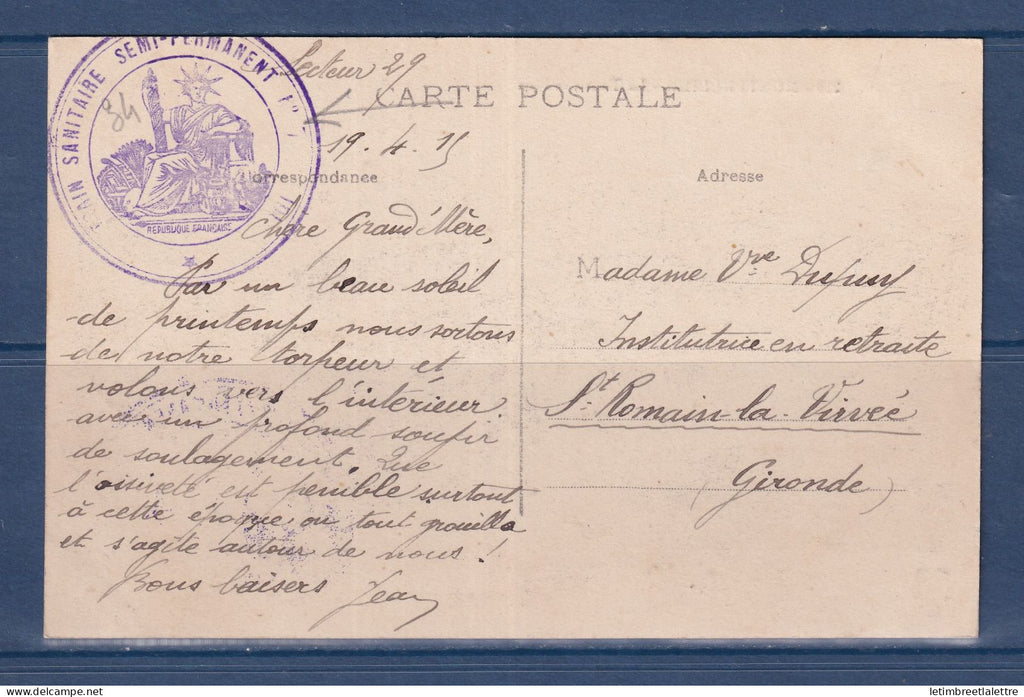 TRAIN SANITAIRE SEMI-PERMANENT
REPUBLIQUE FRANÇAISE
84
Secteur 29
CARTE POSTALE
19.4.15
Correspondance
Adresse
Chère Grand'Mère,
Par un beau soleil
de printemps nous sortons
de notre torpeur et
volons vers l'intérieur
avec un profond soupir
de soulagement. Que
l'oisiveté est penible surtout
à cette époque ou tout grouille
et s'agite autour de nous!
Bons baisers Jean
Madame Vve Dupuy
Institutrice en retraite
St. Romain-la-Virvée
(Gironde)
www.delcampe.net
letimbreetlalettre